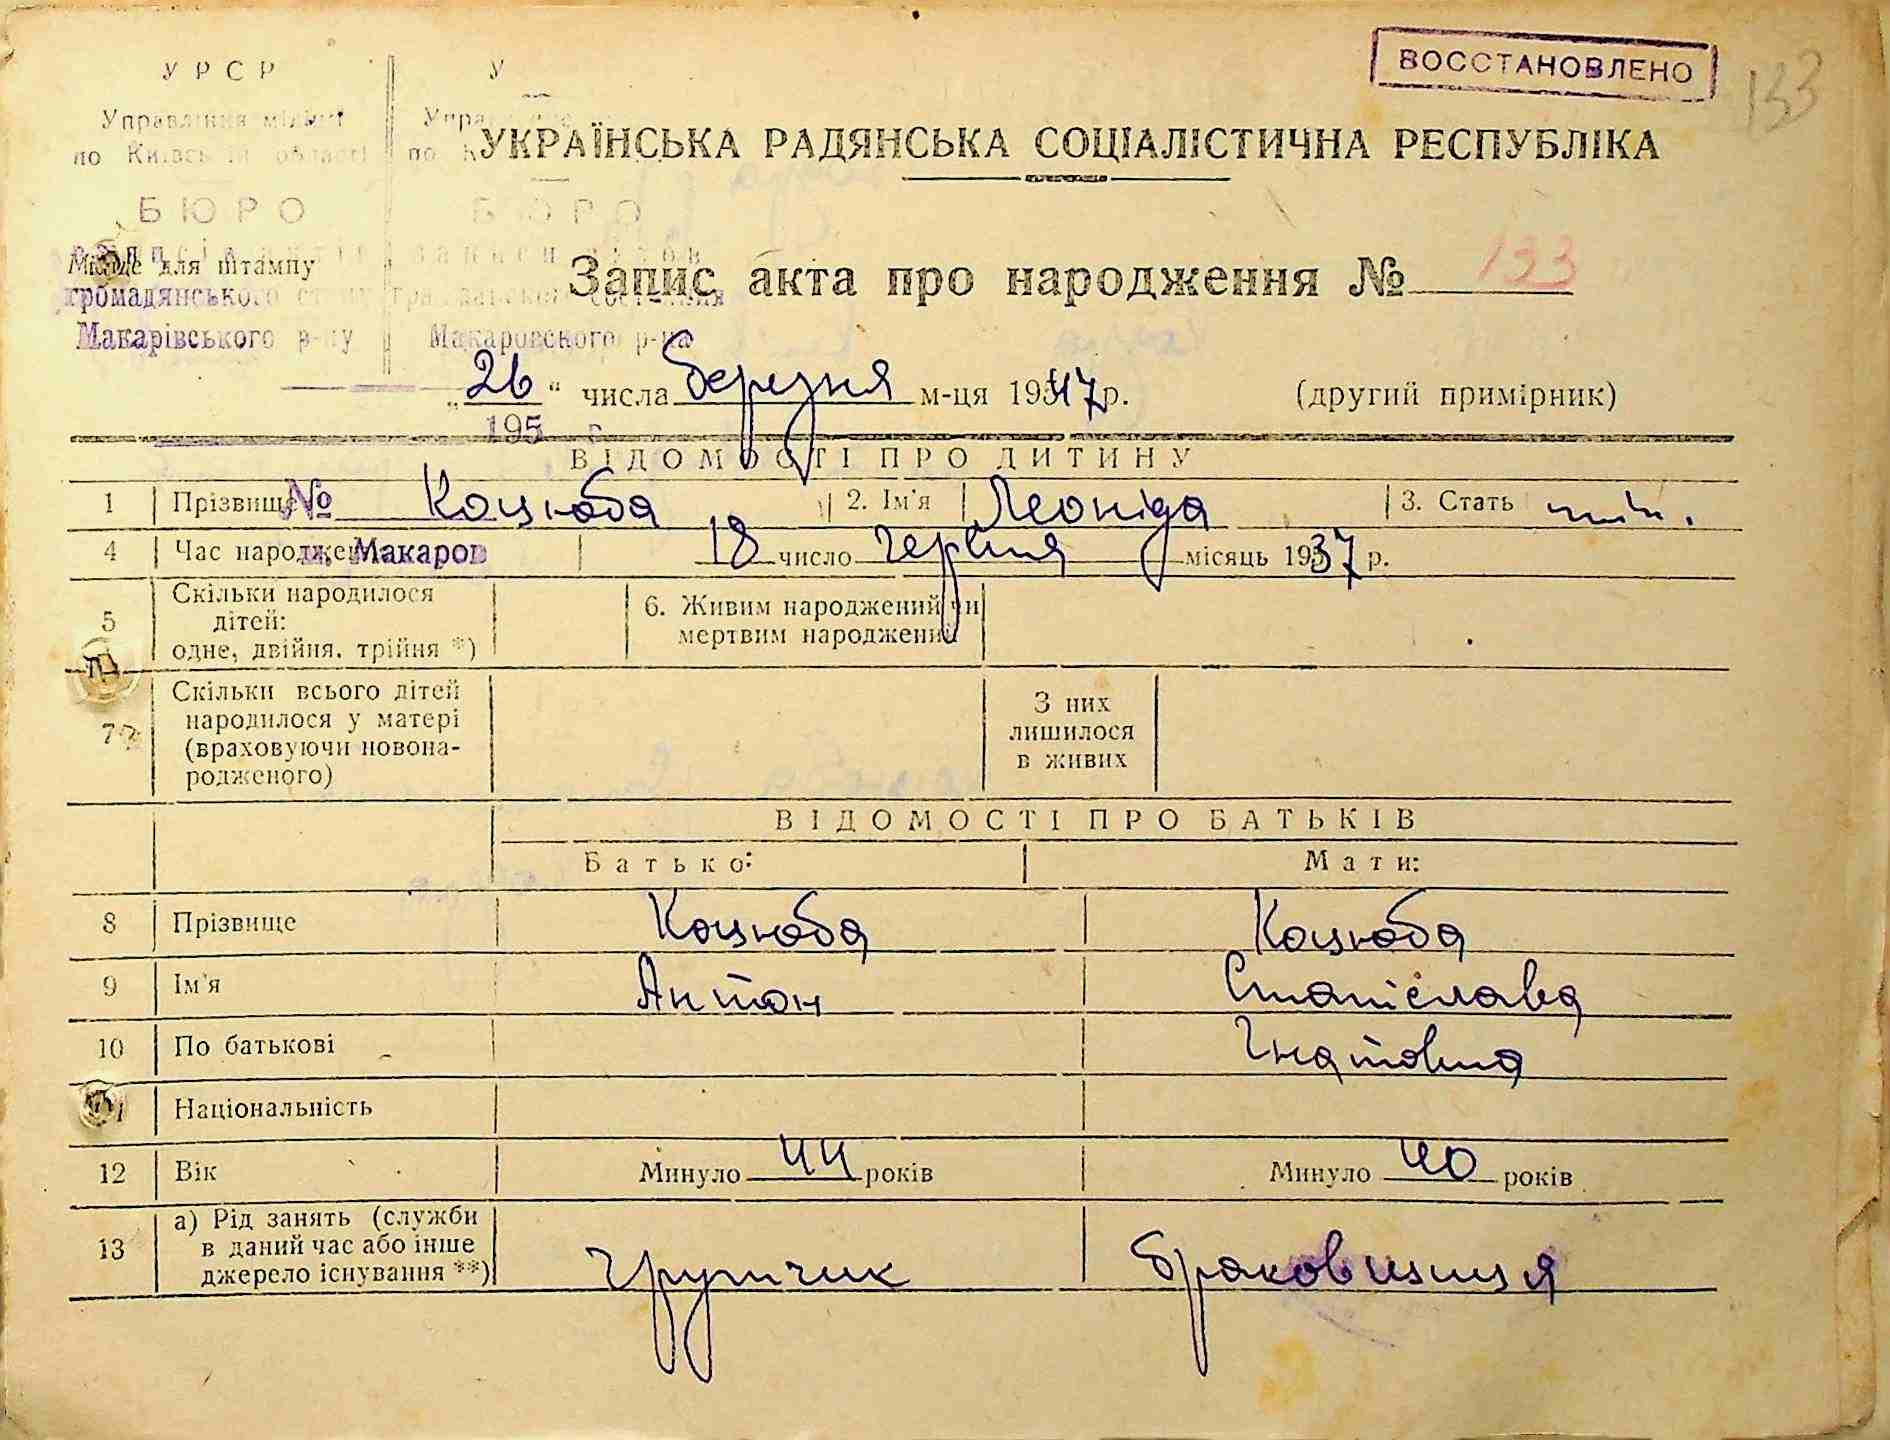 ВОССТАНОВЛЕНО
133
У Р С Р
У
Управління міліції
по Київській області
по К
УКРАЇНСЬКА РАДЯНСЬКА СОЦІАЛІСТИЧНА РЕСПУБЛІКА
Б Ю Р О
Б Ю Р О
Місце для штампу
громадянського стану
гражданского состояния
Запис акта про народження № 133
Макарівського р-ну
Макаровского р-на
„26“ числа березня м-ця 1947 р. (другий примірник)
195 г.
ВІДОМОСТІ ПРО ДИТИНУ
1 Прізвище № Коцюба 2. Ім'я Леоніда 3. Стать
4 Час народження Макаров 18 число червня місяць 1937 р.
5 Скільки народилося дітей: одне, двійня, трійня *) 6. Живим народжений чи мертвим народжений
7 Скільки всього дітей народилося у матері (враховуючи новонародженого) З них лишилося в живих
ВІДОМОСТІ ПРО БАТЬКІВ
Батько: Мати:
8 Прізвище Коцюба Коцюба
9 Ім'я Антон Станіслава
10 По батькові Гнатовна
Національність
12 Вік Минуло 44 років Минуло 40 років
13 а) Рід занять (служби в даний час або інше джерело існування **)